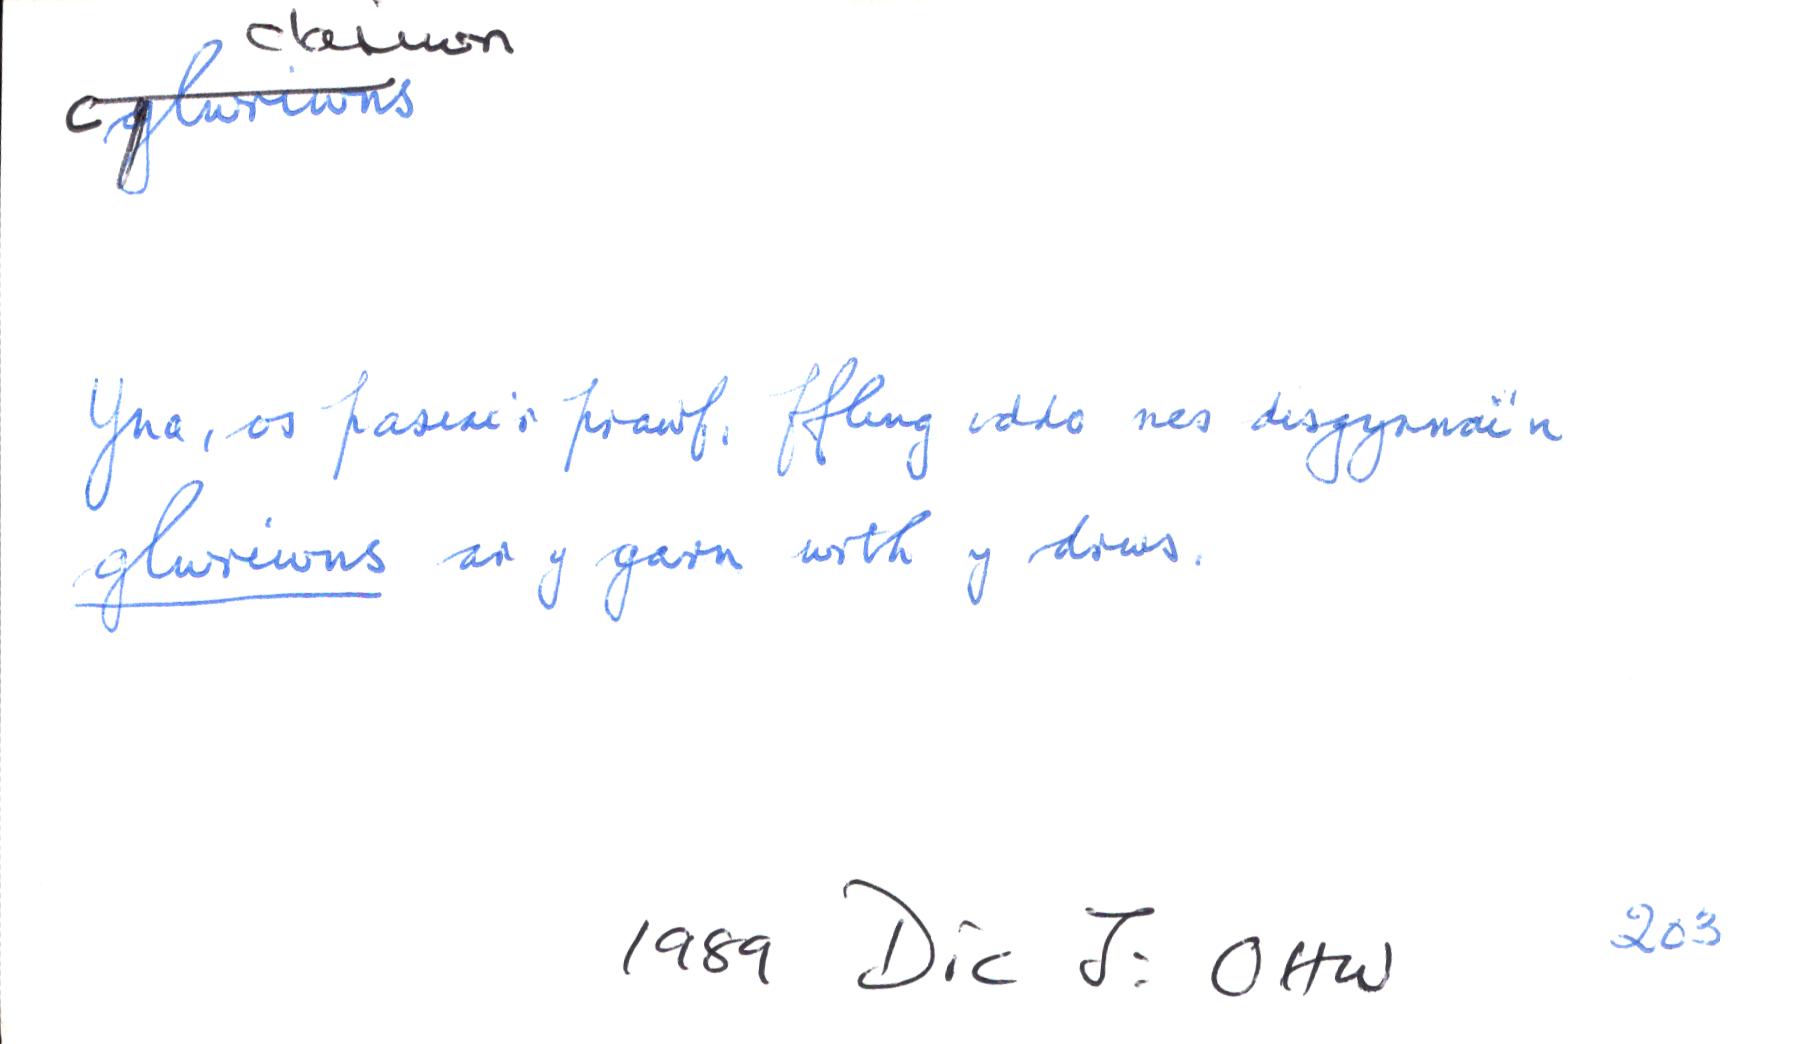 cgluriwns
Yna, os pasiai'r prawf. Ffling iddo nes disgynnai'n
gluriwns ar y garn wrth y drws.
1989 Dic J: OHW 203